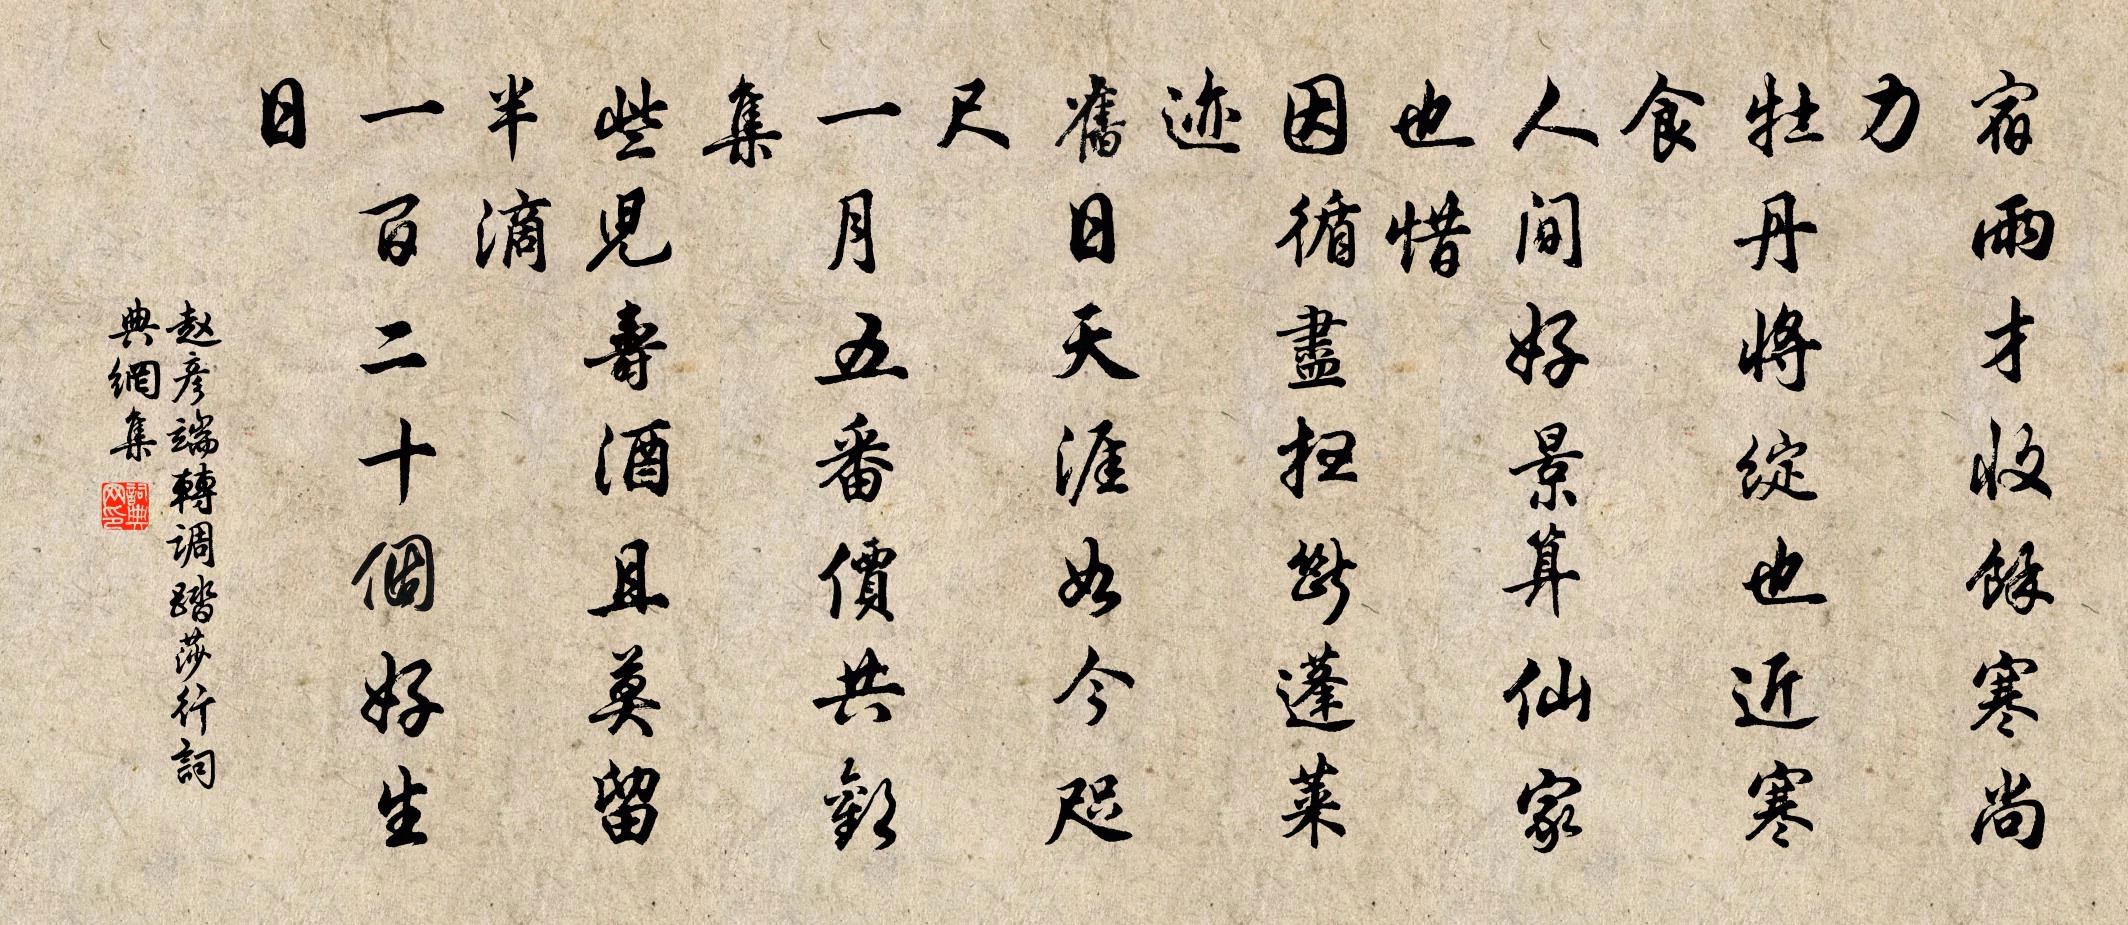 宿雨才收餘寒尚
力
牡丹將綻也近寒
食
人间好景算仙家
也惜
因循盡扫斷蓬萊
迹
舊日天涯如今咫
尺
一月五番價共歡
集
些兒壽酒且莫留
半滴
一百二十個好生
日
赵彦端轉调踏莎行詞
典網集
詞典网印